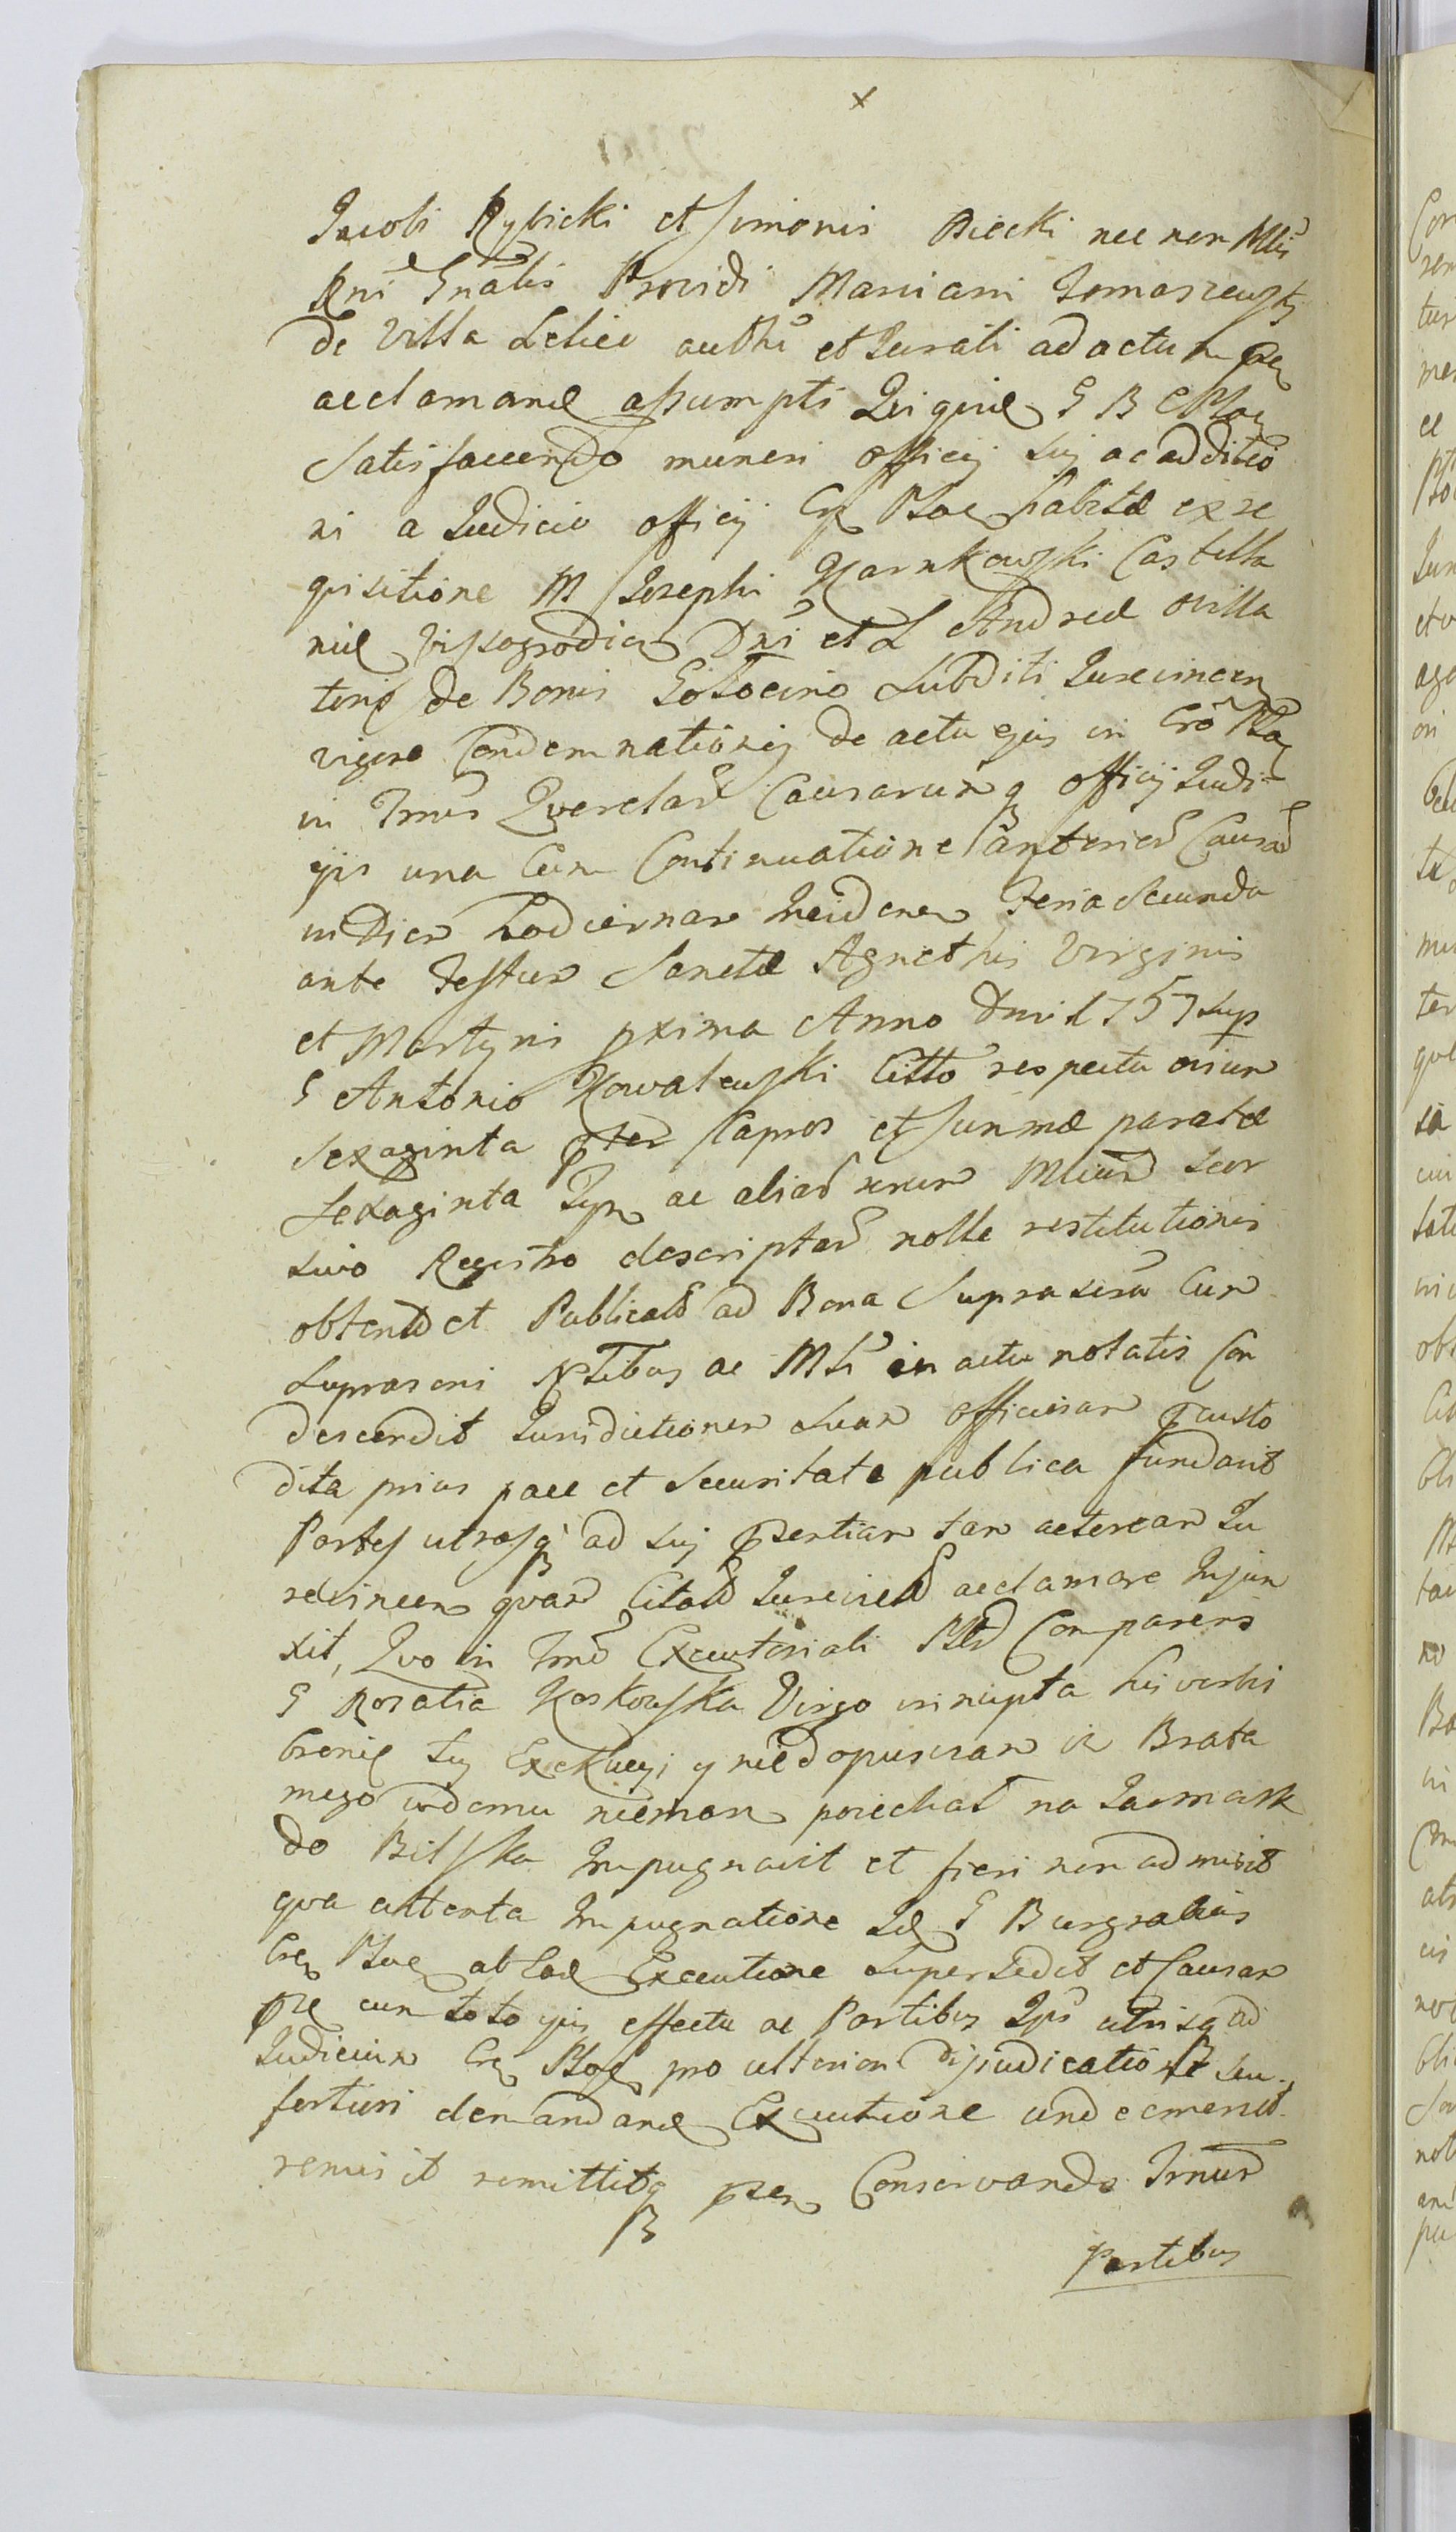 x
Jacobi Rybicki et Simonis Piecki nec non Mlis
Rni Gnalis Providi Marciani Tomaszewski
de Villa Lelice authi et Jurati ad actum
acclamand assumpti G B C Ploc
Satisfaciendo muneri officij sui ac additio
ni a Judicio officij Cap Ploc habitæ ex re
quisitione M Josephi Czarnkowski Castella
niæ Vissogrodien Dni et L Andreæ ovilla
toris de Bonis Goloceino Subditi Jurevincen
vigore Condemnationis de actu ejus in Cro Ploc
in Tmis Querelar Causarumq officij Judi-
ijs una Cum Continuatione anterior Causar
in Diem hodiernam Incidenem Feria Secunda
ante Festum Sanctæ Agnethis Virginis
et Martyris pxima Anno Dni 1757 Sup
G Antonio Kowalewski Citto respectu ovium
Sexaginta pter Capros et Summæ paratæ
Sexaginta ac aliar rerum seor
sivo Regestro descriptar nolle restitutionis
obtent et Publicat ad Bona Suprascri Cum
Suprascri Nlibus ac Mli in actu notatis Con
descendit Jurisdictionem Suam officiosam pcusto
dita prius pace et Securitate publica fundavit
Partes utrasq ad sui psentiam tam actoream Ju
revincen quam Citat Jurevict acclamare Injun
xit, Quo in Tmo Executoriali Pltr Comparens
G Rozalia Koskowska Virgo innupta his verbis
bronie tey Exekucyi y nie dopuszczam iz Brata
mego w domu niemasz poiechał na Jarmark
do Bilska Impugnavit et fieri non admisit
qua attenta Impugnatione Id G Burgrabius
Crs Ploc ab Ead Executione Supersedit et Causam
pte cum toto ejus effectu ac Partibus Ips utrisq ad
Judicium Crs Ploc pro ulteriori dijudicatione seu
fortiori demandand Executione unde emersit
remisit remittitq pten Conservando Tmum
Partibus